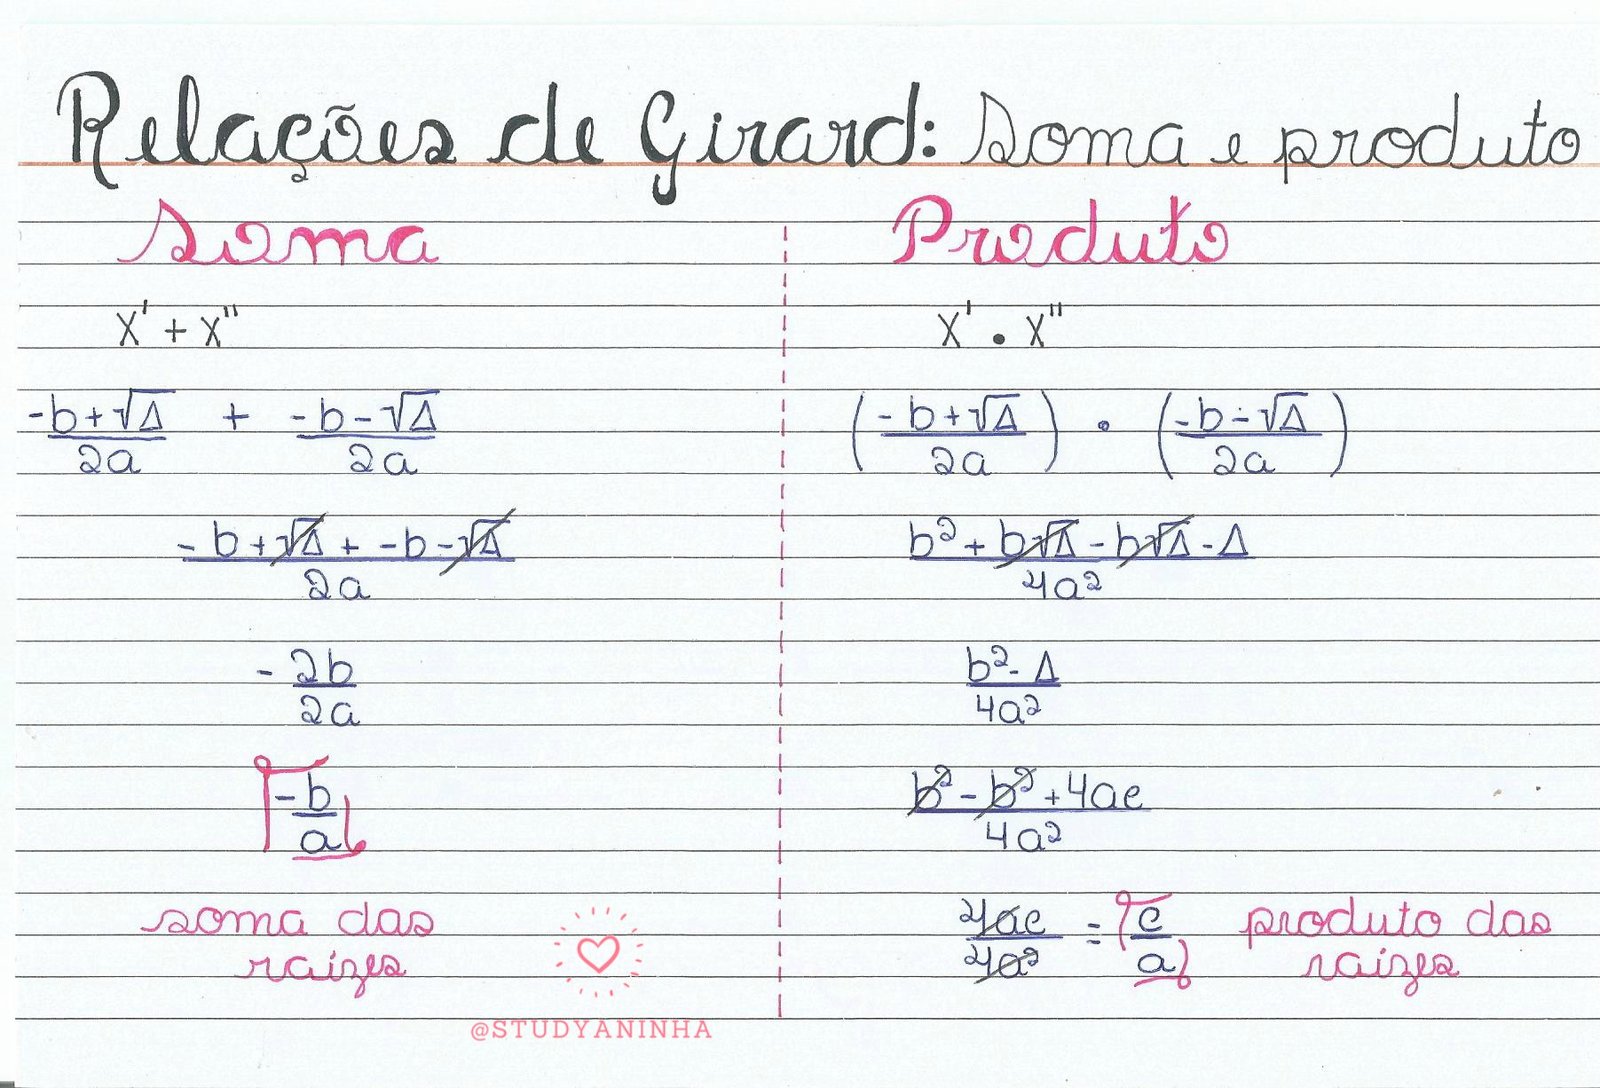 Relações de Girard: Soma e produto
Soma
x' + x"
-b+√Δ/2a + -b-√Δ/2a
-b+√Δ + -b-√Δ/2a
-2b/2a
-b/a
soma das
raízes
Produto
x' . x"
(-b+√Δ/2a) . (-b-√Δ/2a)
b²+b√Δ-b√Δ-Δ/4a²
b²-Δ/4a²
b²-b²+4ac/4a²
4ac/4a² = c/a produto das
raízes
@STUDYANINHA